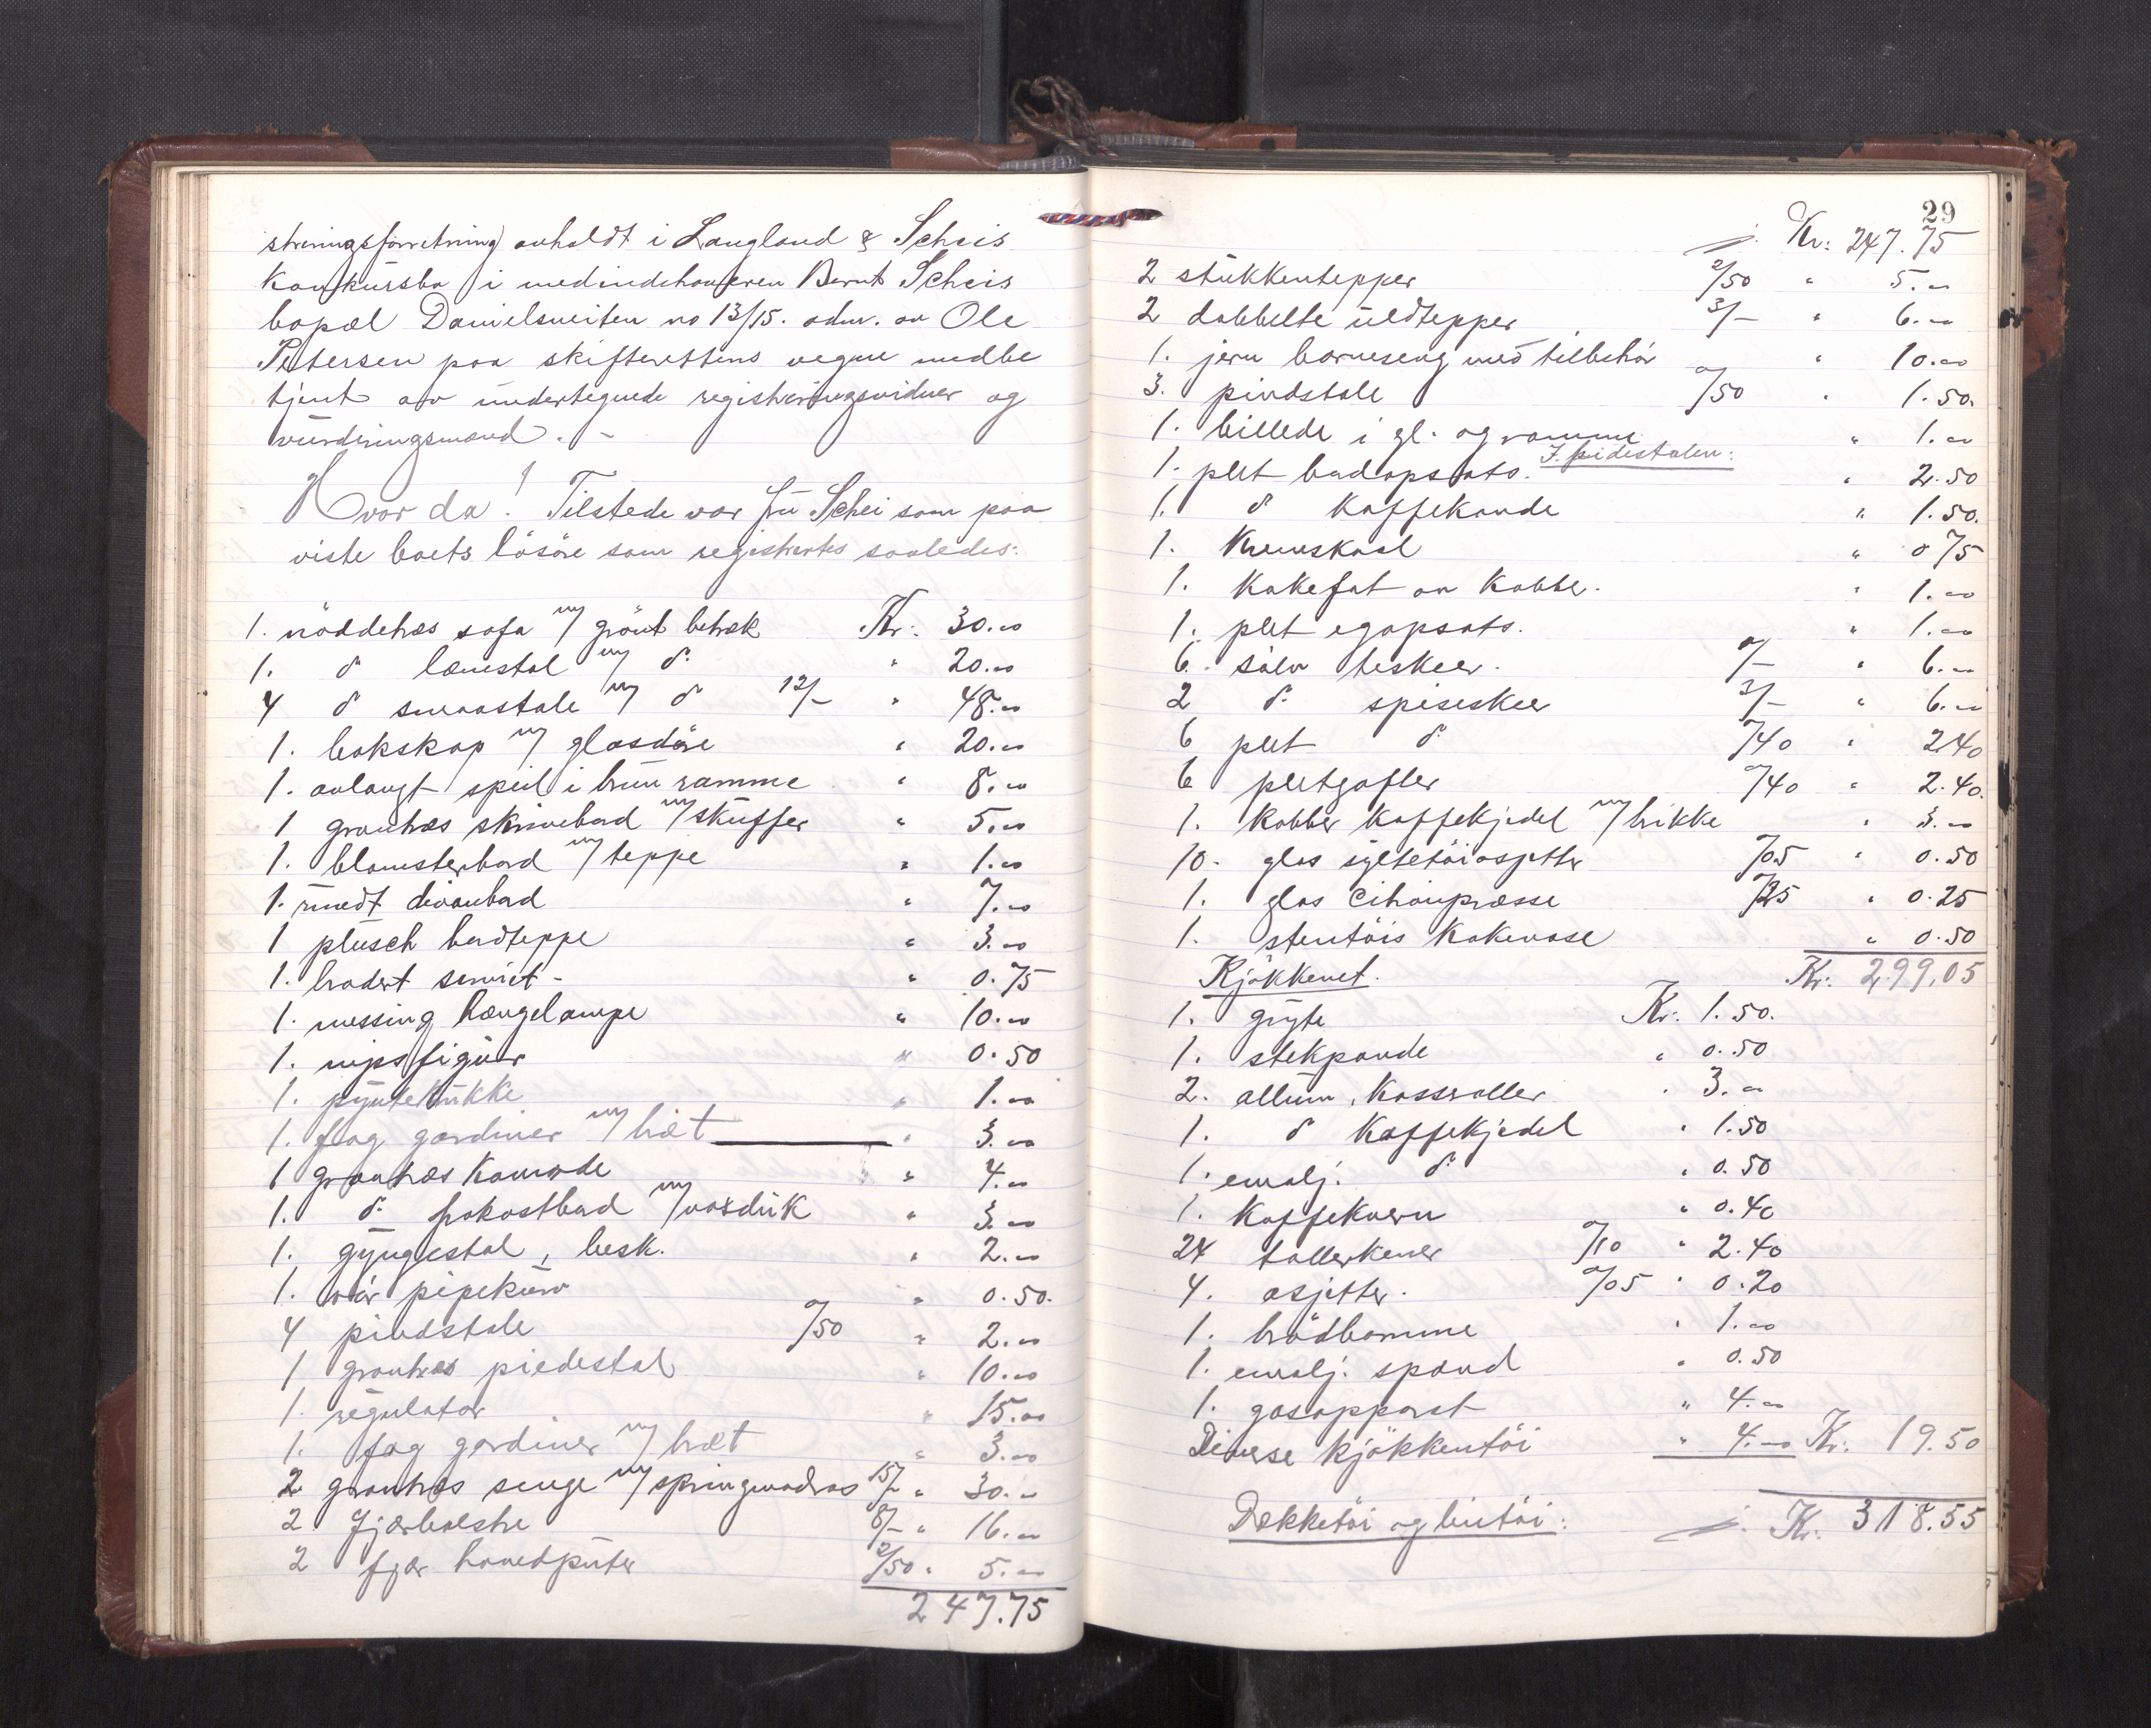 streringsforretning) avholdt i Langland & Scheis
konkursbo i medindehaveren Bernt Scheis
bopæl Danielsveiten no 13/15. adm. av Ole
Petersen paa skifterettens vegne medbe
tjent av undertegnede registreringsvidner og
vurderingsmænd. -
Hvorda! Tilstede var fru Schei som paa
viste boets lösöre som registrertes saaledes:
1. nöddetræs sofa m/ grönt betræk Kr: 30.00
1. do lænestol m/ do " 20.00
4 do smaastole m/ do 12/- " 48.00
1. bokskap m/ glasdöre " 20.00
1. avlangt speil i brun ramme " 8.00
1 grantræs skrivebord m/ skuffer " 5.00
1. blomsterbord m/ teppe " 1.00
1. rundt divanbord " 7.00
1 plusch bordteppe " 3.00
1. brodert serviet - " 0.75
1. messing hængelampe " 10.00
1. nipsfigur " 0.50
1. pyntekrukke " 1.00
1. fag gardiner m/ bræt " 3.00
1 grantræs Komode " 4.00
1. do frokostbord m/ voxduk " 3.00
1. gyngestol, besk. " 2.00
1. rör pipekurv " 0.50.
4 pindstole 0/50 " 2.00
1 grantræs piedestal " 10.00
1. regulator " 15.00
1. fag gardiner m/ bræt " 3.00
2 grantræs senge m/ springmadras 15/- " 30.00
2 fjærbolstre 8/- " 16.00
2 fjær hovedputer 2/50 " 5.00
247.75
29
Kr: 247.75
2 stukkentepper 2/50 " 5.00
2 dobbelte uldtepper 3/- " 6.00
1. jern barneseng med tilbehör " 10.00
3. pindstole 0/50 " 1.50.
1. billede i gl. og ramme " 1.00
I. pidestalen:
1. plet bordopsats. " 2.50
1. do Kaffekande " 1.50.
1. Kremskaal " 0 75
1. Kakefat av Kobber. " 1.00
1. plet egopsats. " 1.00
6. sölv teskeer. 1/- " 6.00
2 do spiseskeer 3/- " 6.00
6 plet do 0/40 " 2.40
6 pletgafler 0/40 " 2.40.
1. Kobber Kaffekjedel m/ brikke " 3.00
10. glas syltetöiasjetter 0/05 " 0.50
1. glas citronpresse 0/25 " 0.25
1. stentöis Kakevase " 0.50
Kr: 299.05
Kjökkenet.
1. gryte Kr: 1.50.
1. stekpande " 0.50
2. allum. Kasseroller " 3.00
1. do Kaffekjedel " 1.50
1. emalj. do " 0.50
1. Kaffekvern " 0.40
24 tallerkener 0/10 " 2.40
4. asjetter. 0/05 " 0.20
1. brödbomme " 1.00
1. emalj. spand " 0.50
1. gasapparat " 4.00
Diverse kjökkentöi " 4.00 Kr: 19.50
Dækketöi og lintöi: Kr: 318.55